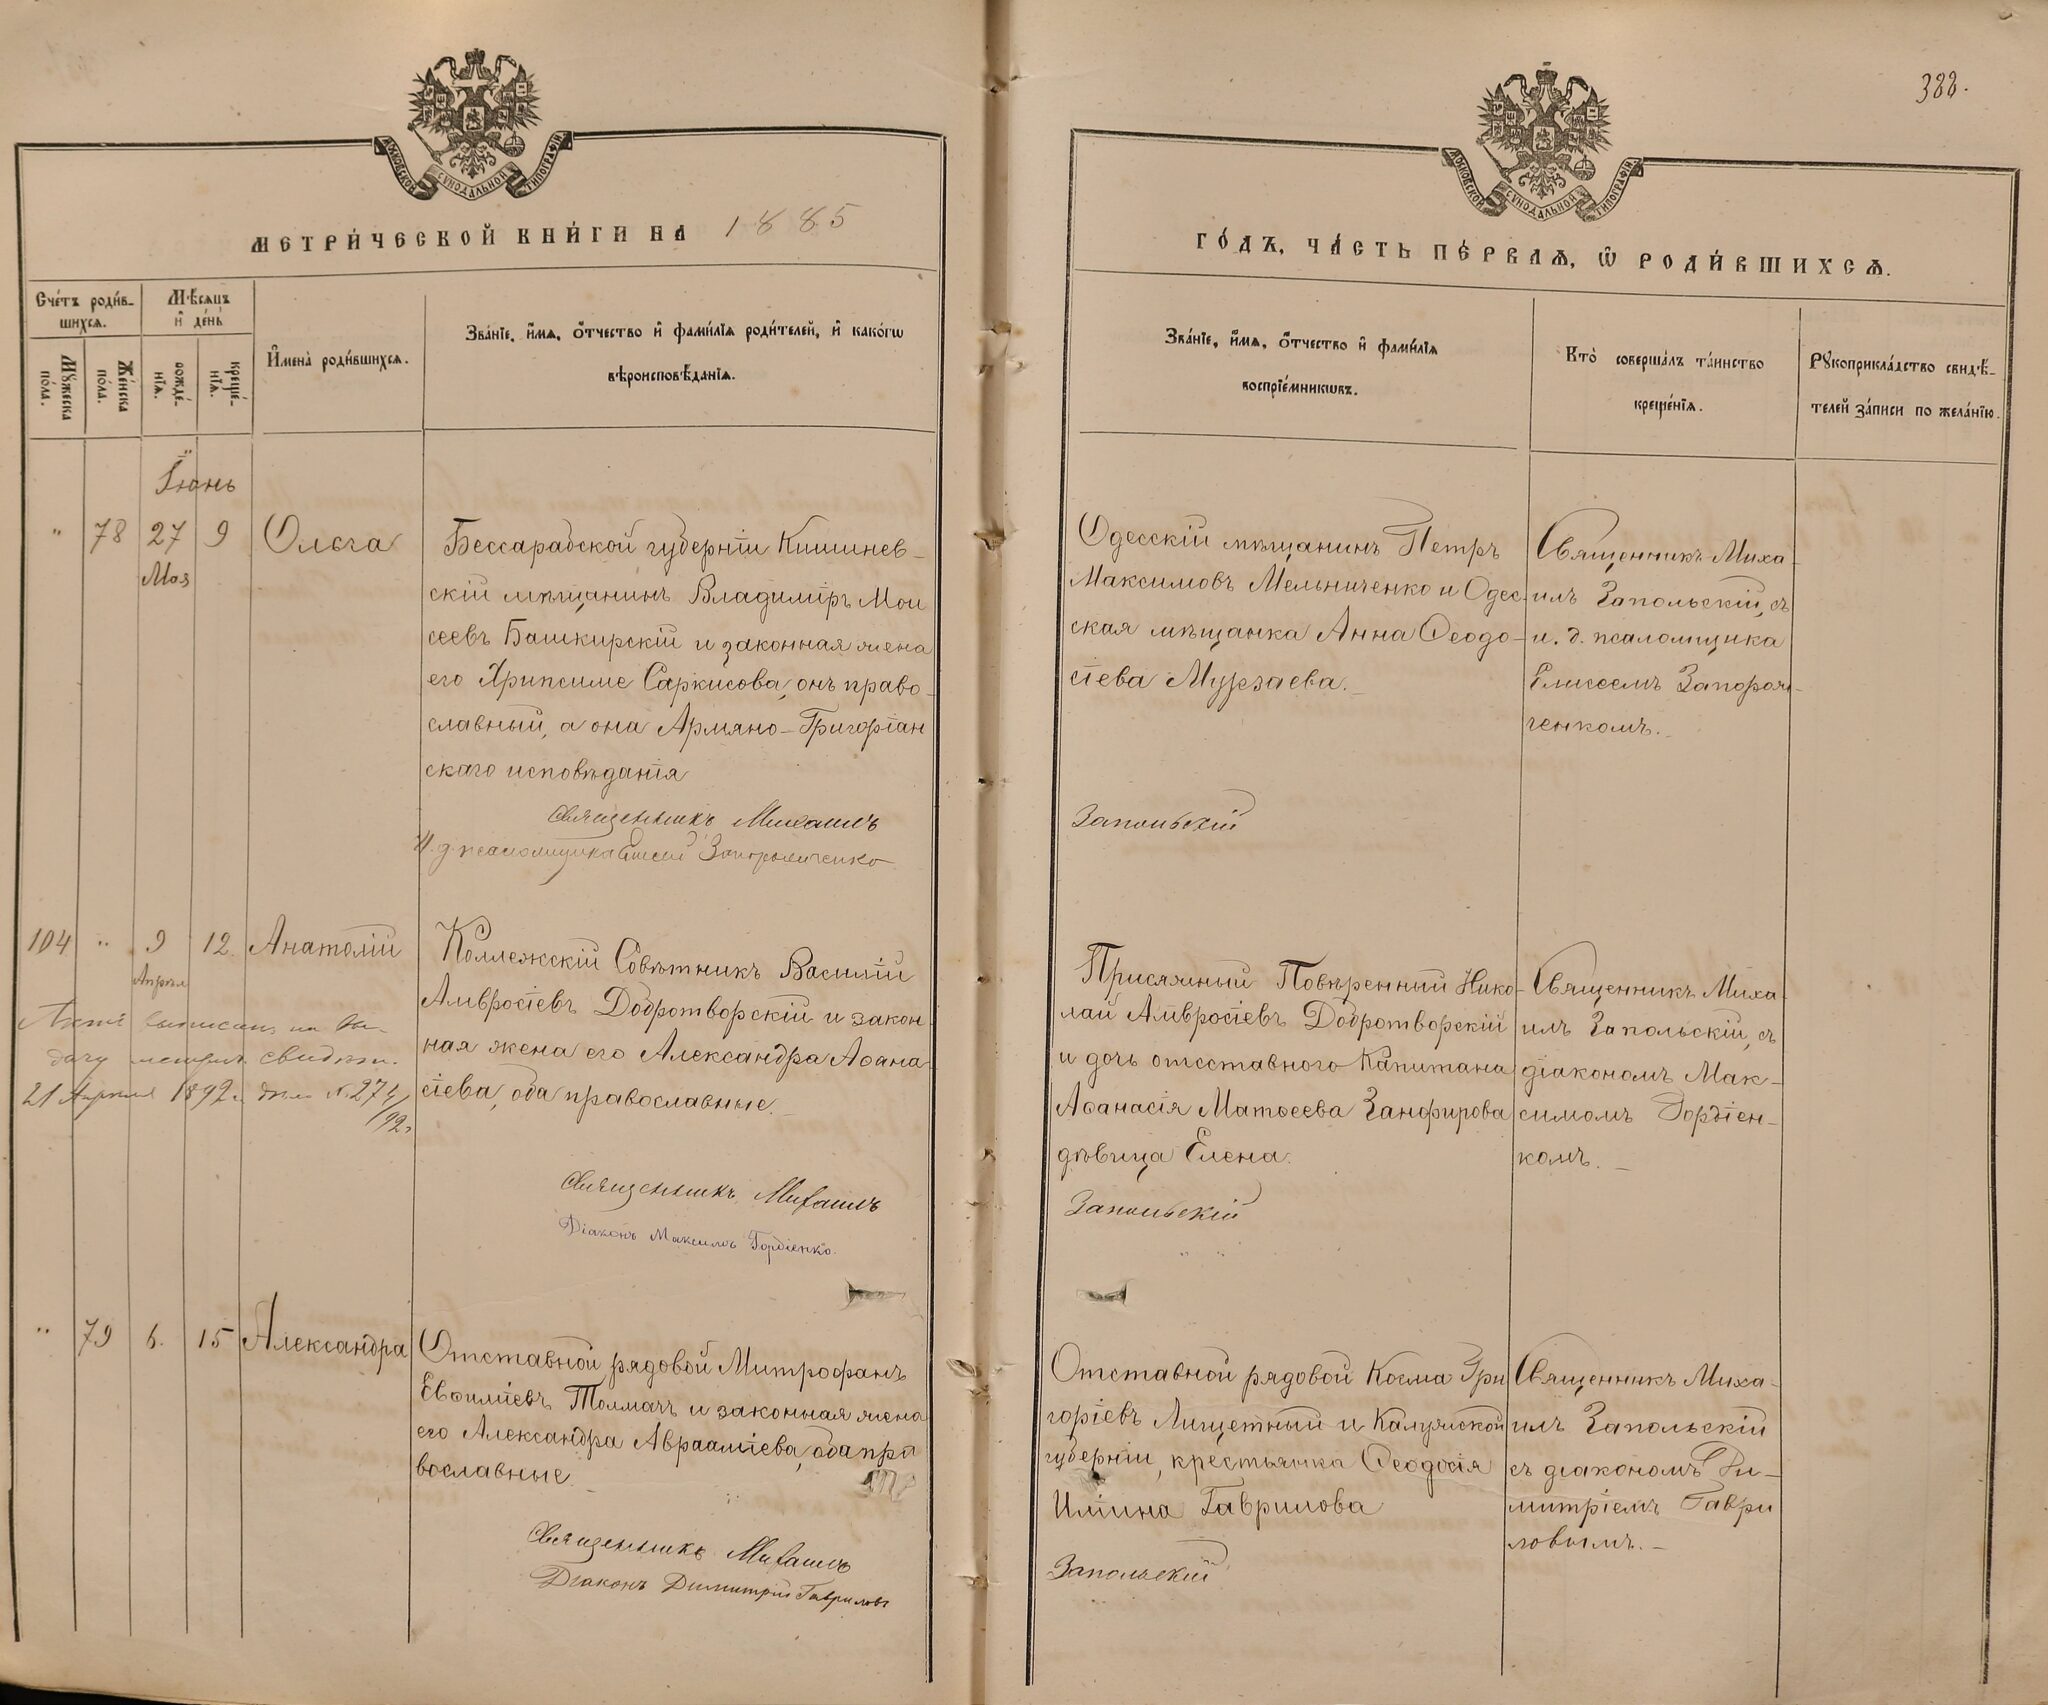 388.
МОСКОВСКОЙ СѴНОДАЛЬНОЙ ТИПОГРАФІИ
МОСКОВСКОЙ СѴНОДАЛЬНОЙ ТИПОГРАФІИ
МЕТРИ́ЧЕСКОЙ КНИ́ГИ НА 1885
ГО́ДЪ, ЧА́СТЬ ПЕ́РВАѦ, Ѡ҆ РОДИ́ВШИХСѦ.
Сче́тъ роди́в-
шихсѧ.
Мꙋ́жеска
по́ла.
Же́нска
по́ла.
Мѣ́сѧцъ
и҆ де́нь
рожде́-
нїѧ.
креще́-
нїѧ.
И҆мена̀ роди́вшихсѧ.
Зва́нїе, и҆́мѧ, ѻ҆́тчество и҆ фами́лїѧ роди́телей, и҆ како́гѡ
вѣроисповѣ́данїѧ.
Зва́нїе, и҆́мѧ, ѻ҆́тчество и҆ фами́лїѧ
воспрїе́мникѡвъ.
Кто̀ соверша́лъ та́инство
креще́нїѧ.
Рꙋкоприкла́дство свидѣ́-
телей за́писи по жела́нїю.
Іюнь
" 78 27 9 Ольга
Мая
Бессарабской губерніи Кишинев-
скій мѣщанинъ Владиміръ Мои
сеевъ Башкирскій и законная жена
его Хрипсиме Саркисова, онъ право-
славный, а она Армяно-Григоріан
скаго исповѣданія
Священникъ Михаилъ
И. д. псаломщика Елисей Запорожченко
Одесскій мѣщанинъ Петръ
Максимовъ Мельниченко и Одес-
ская мѣщанка Анна Ѳеодо-
сіева Мурзаева.
Запольскій
Священникъ Миха-
илъ Запольскій, съ
и. д. псаломщика
Елисеемъ Запорож-
ченкомъ.
104 " 9 12. Анатолій
Апрѣл
Актъ выписанъ на вы-
дачу метрич. свидѣт.
21 Апрѣля 1892 г. дѣло № 274/92.
Коллежскій Совѣтникъ Василій
Амвросіевъ Добротворскій и закон
ная жена его Александра Аѳана-
сіева, оба православные.
Священникъ Михаилъ
Діаконъ Максимъ Гордіенко.
Присяжный Повѣренный Нико-
лай Амвросіевъ Добротворскій
и дочь отставного Капитана
Аѳанасія Матѳеева Занфирова
дѣвица Елена.
Запольскій
Священникъ Миха-
илъ Запольскій, съ
діакономъ Мак-
симомъ Гордіен-
комъ.
" 79 6. 15 Александра
Отставной рядовой Митрофанъ
Евѳиміевъ Толмачъ и законная жена
его Александра Авраамiева, оба пра
вославные.
Священникъ Михаилъ
Діаконъ Димитрій Гавриловъ
Отставной рядовой Косма Гри
горіевъ Лищетный и Калужской
губерніи, крестьянка Ѳеодосія
Ильина Гаврилова
Запольскій
Священникъ Миха-
илъ Запольскій
съ діакономъ Ди-
митріемъ Гаври
ловымъ.